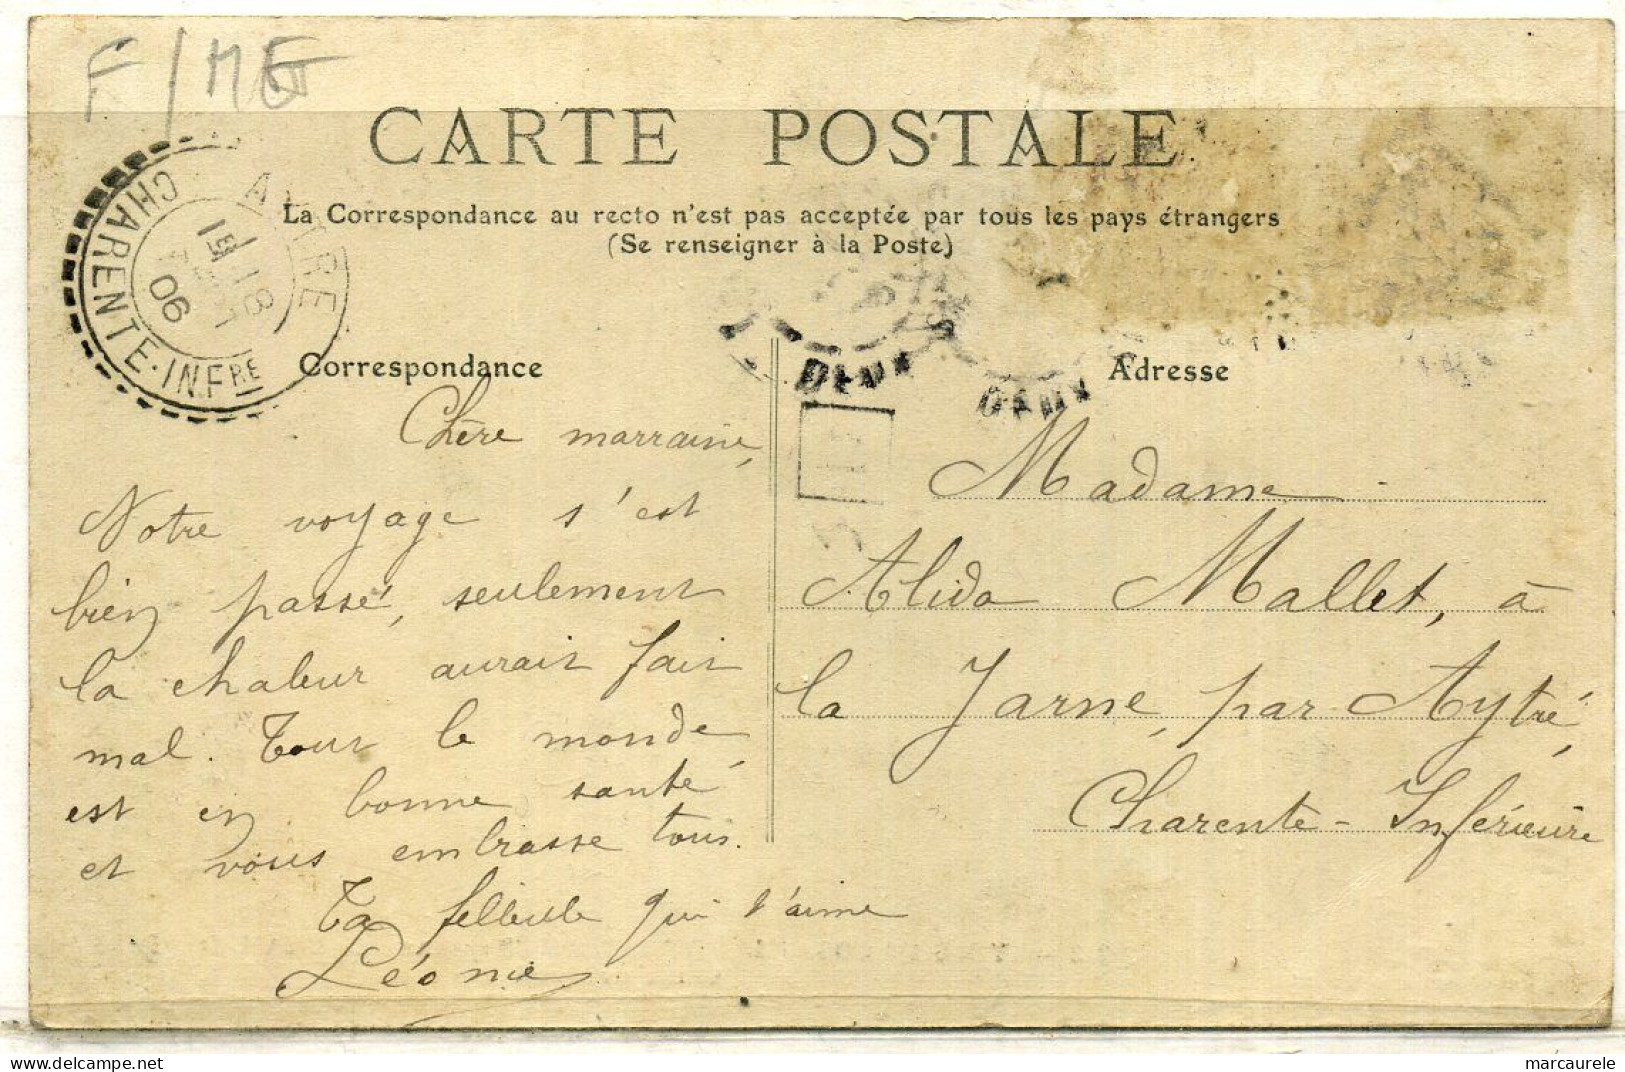 F/MG
CARTE POSTALE
La Correspondance au recto n'est pas acceptée par tous les pays étrangers
(Se renseigner à la Poste)
AYTRE
18
06
CHARENTE-INFRE
Correspondance
Chère marraine,
Notre voyage s'est
bien passé, seulement
la chaleur aurait fait
mal. Tout le monde
est en bonne santé
et vous embrasse tous.
Ta filleule qui t'aime
Léonie
Adresse
Madame
Alida Mallet, à
la Jarne, par Aytré,
Charente-Inférieure
Delcampe.net
marcaurele